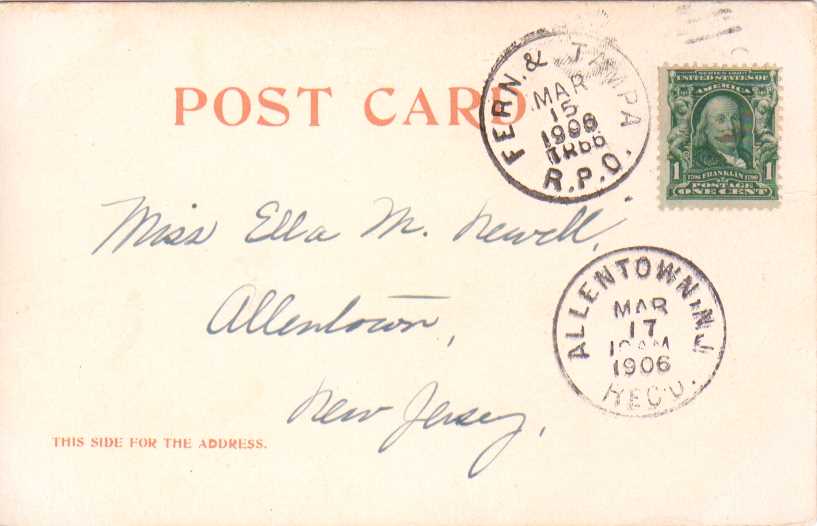 POST CARD
FERN. & TAMPA
MAR
15
1906
R.P.O.
SERIES 1902
UNITED STATES OF
AMERICA
1 1706 FRANKLIN 1790 1
POSTAGE
ONE CENT
Miss Ella M. Newell,
Allentown,
New Jersey,
ALLENTOWN, N.J.
MAR
17
10 AM
1906
REC'D.
THIS SIDE FOR THE ADDRESS.